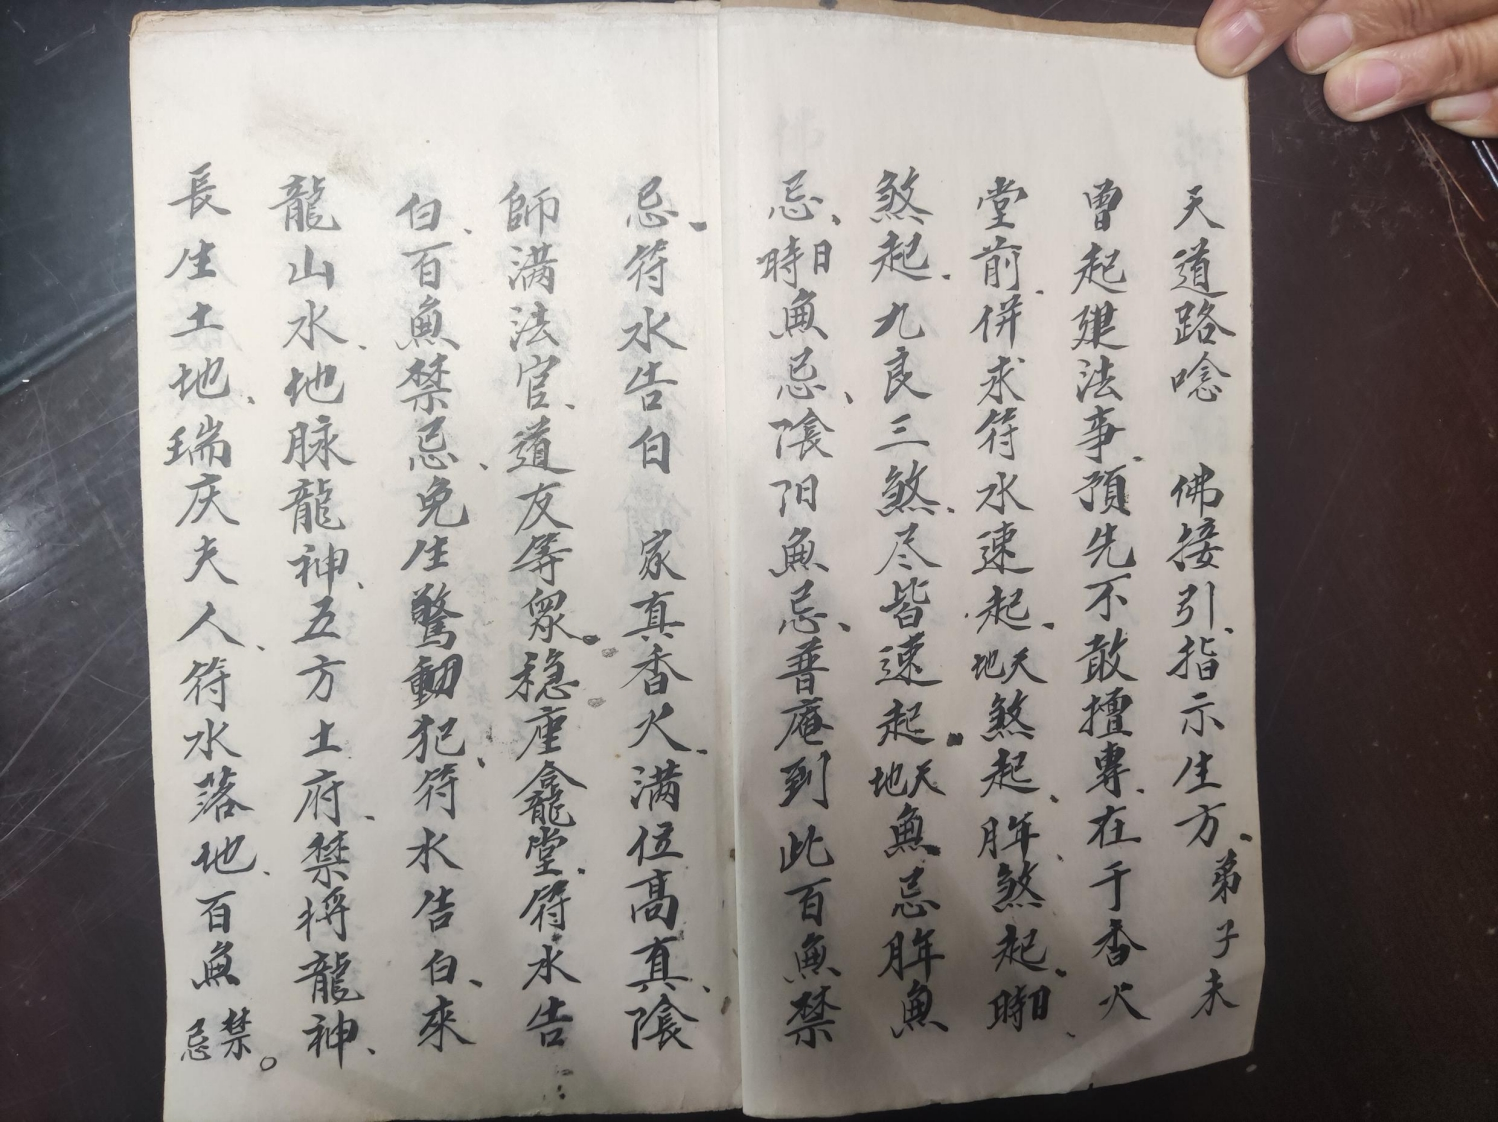 天道路唸 佛接引、指示生方、弟子未
曾起建法事、預先不敢擅專、在于香火
堂前、併求符水速起、天地煞起、年月煞起、日時
煞起、九良三煞、尽皆速起、天地魚忌年月魚
忌、日時魚忌、陰阳魚忌、普庵到此百魚禁
忌、符水告白 家真香火、满位高真、陰
師满法官、道友等眾。稳座龕堂、符水告
白、百魚禁忌、免生驚動犯、符水告白、來
龍山水、地脉龍神、五方土府、禁将龍神、
長生土地、瑞庆夫人、符水落地、百魚禁忌。